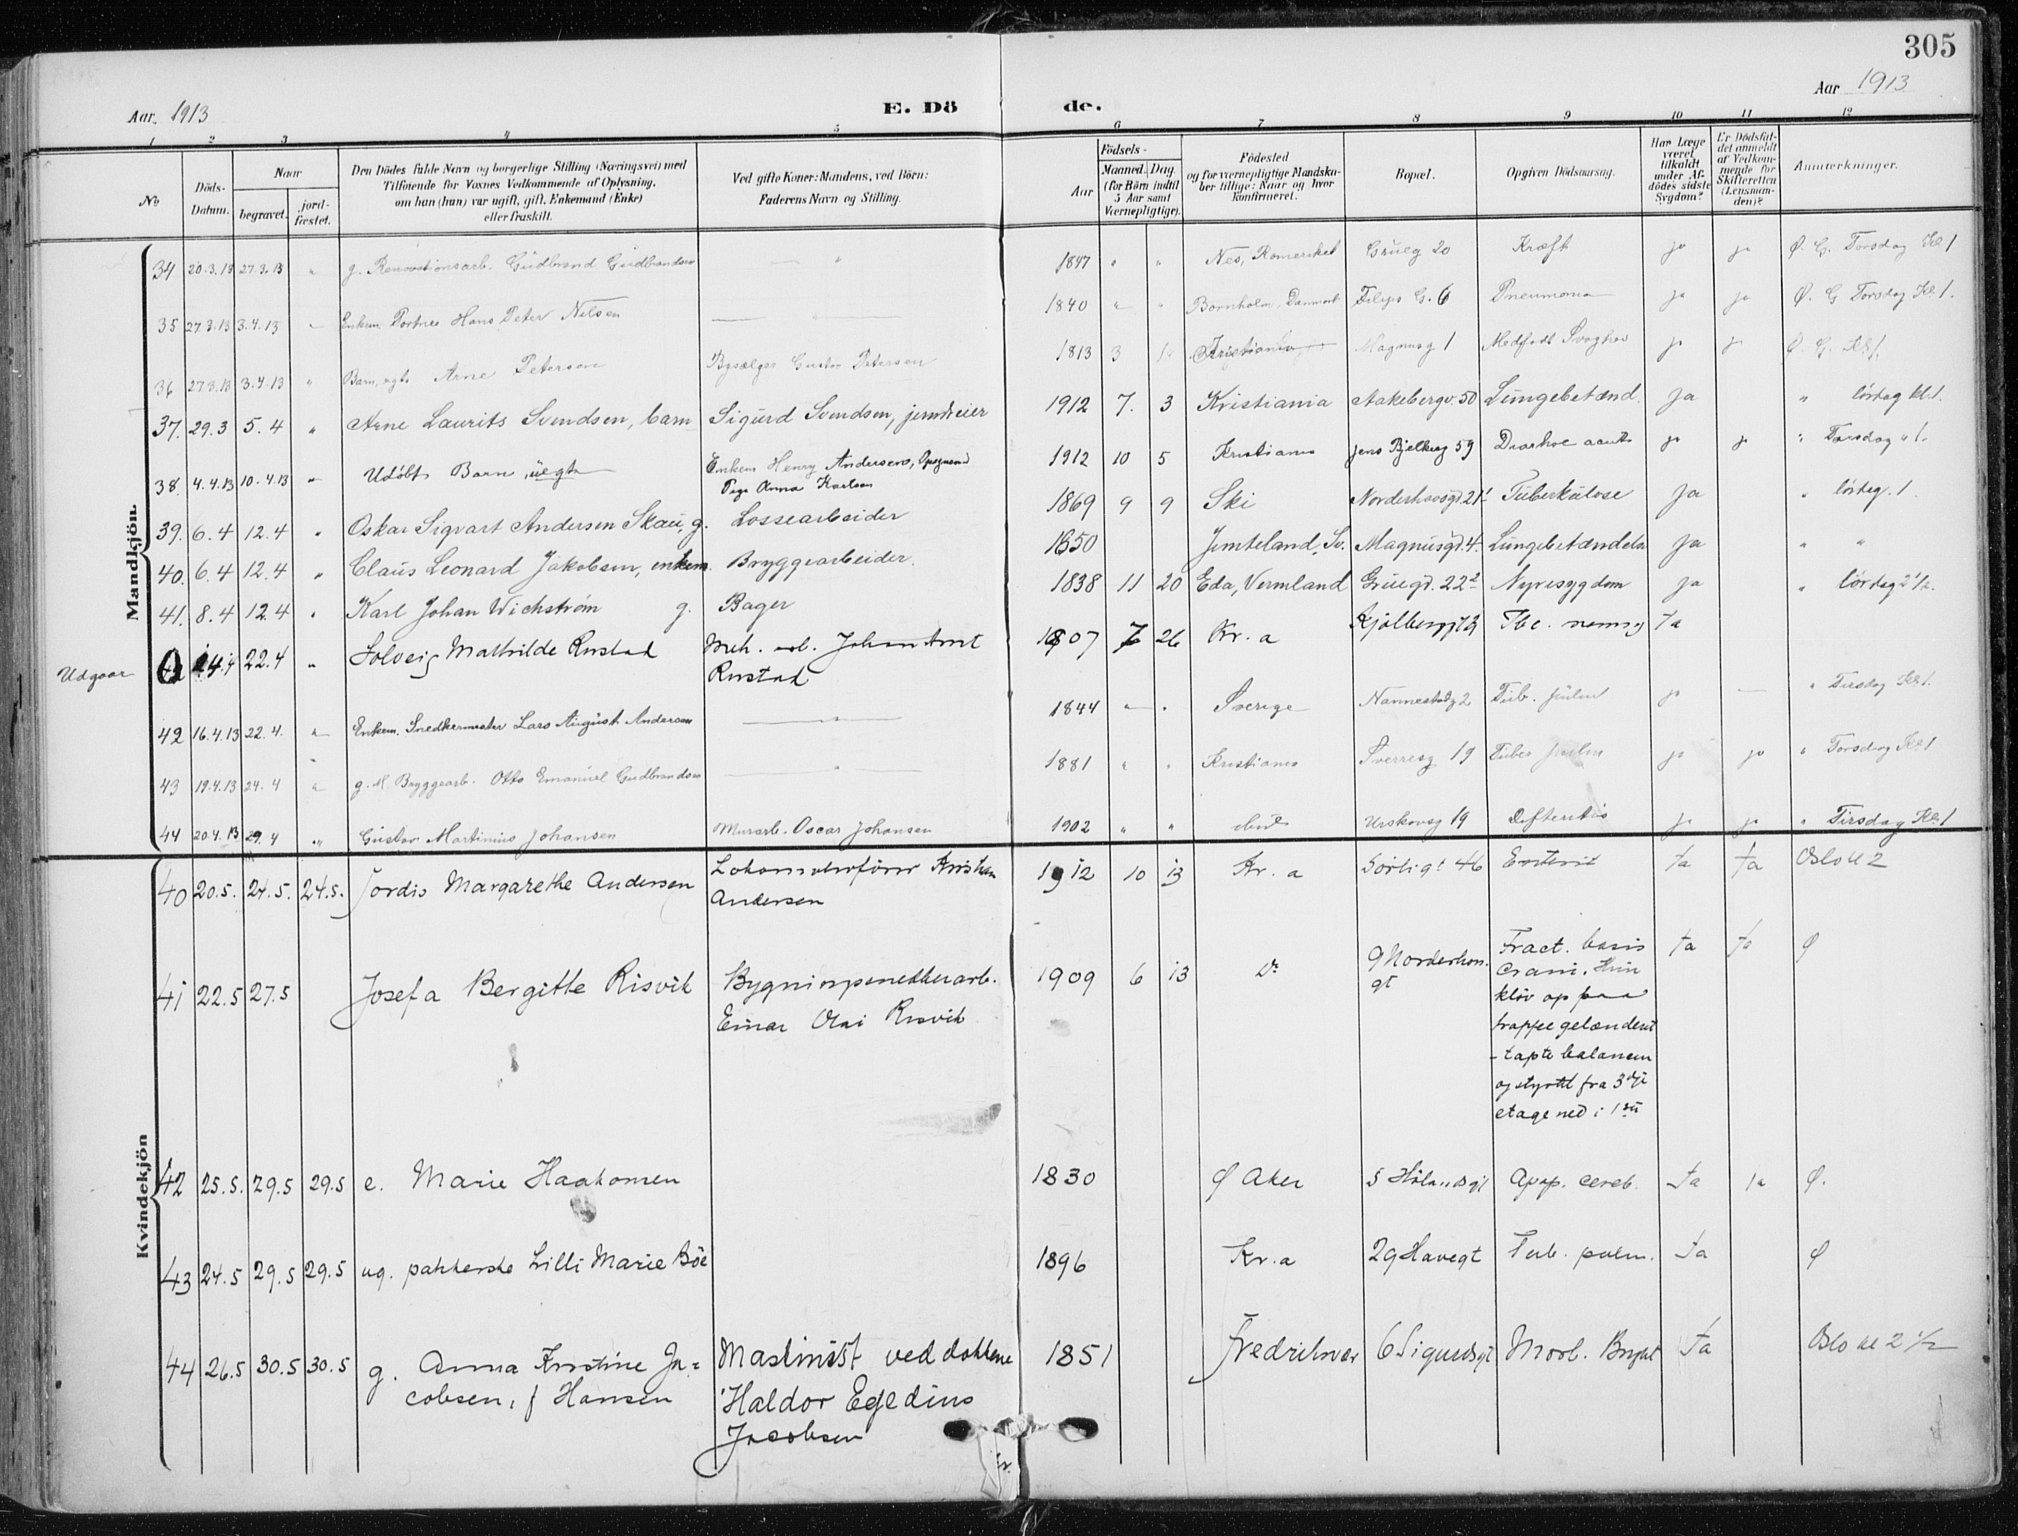 305
Aar 1913 E. Dö de. Aar 1913
1 2 3 4 5 6 7 8 9 10 11 12
No
Döds-Datum.
Naar
begravet.
jord-fæstet.
Den Dödes fulde Navn og borgerlige Stilling (Næringsvei) med
Tilföiende for Voxnes Vedkommende af Oplysning,
om han (hun) var ugift, gift, Enkemand (Enke)
eller fraskilt.
Ved gifte Koner: Mandens, ved Börn:
Faderens Navn og Stilling.
Födsels-
Aar
Maaned. Dag.
(for Börn indtil
5 Aar samt
Værnepligtige).
Födested
og for værnepligtige Mandska-
ber tillige: Naar og hvor
konfirmeret.
Bopæl.
Opgiven Dödsaarsag.
Har Læge
været
tilkaldt
under Af-
dödes sidste
Sygdom?
Er Dödsfal-
det anmeldt
af Vedkom-
mende for
Skifteretten
(Lensman-
den)?
Anmærkninger.
Mandkjön.
34 20.3.13 27.3.13 " g. Renovationsarb. Gudbrand Gudbrandsen — " 1847 " " Nes, Romeriket Grueg 20 Kræft ja ja Ø. G. Torsdag Kl 1
35 27.3.13 3.4.13 " Enkem. Portner Hans Peter Nilsen — " 1840 " " Bornholm, Danmark Filips G. 6 Pneumonia ja ja Ø. G Torsdag Kl 1.
36 27.3.13 3.4.13 " Barn, egte Arne Petersen Bysælger Gustav Petersen 1813 3 Kristiania Magnusg 1 Medfødt Svaghed ja ja Ø. G. Kl 1.
37. 29.3 5.4 " Arne Laurits Svendsen, barn Sigurd Svendsen, jernbeier 1912 7. 3 Kristiania Aakebergv. 50 Lungebetænd. ja " lørdag kl. 1.
38. 4.4.13 10.4.13 " Udøbt Barn, uegte Enkem Henry Andersens,
Pige Anna Karlsen 1912 10 5 Kristiania Jens Bjelkesg 59 Diarhoe acuta ja ja " Torsdag " 1.
39. 6.4 12.4 " Oskar Sigvart Andersen Skau, g. Lossearbeider 1869 9 9 Ski Norderhovsgd. 21 Tuberkulose ja " lørdag. 1.
40. 6.4 12.4 " Claus Leonard Jakobsen, enkem. Bryggearbeider. 1850 Jemteland, Sv. Magnusgd. 4. Lungebetændelse ja " "
41. 8.4 12.4 " Karl Johan Wichstrøm g. Bager 1838 11 20 Eda, Vermland Gruegd. 22 Nyresygdom ja " lørdag 2 ½.
Udgaar 14.4 22.4 " Solveig Mathilde Rustad Mek. arb. Johan Arnt
Rustad 1907 7 26 Kr.a Kjølberggt Tbc. mening Ja
42 16.4.13 22.4. " Enkem. Snedkermester Lars August Andersen — " 1844 " " Sverige Nannestadg 2 Tub. pulm ja — " Tirsdag Kl 1.
43 19.4.13 24.4 " g. M. Bryggearb. Otto Emanuel Gudbrandsen — " 1881 " " Kristiania Sverresg 19 Tuber pulm ja ja " Torsdag Kl 1
44 20.4.13 29.4 " Gustav Martinius Johansen Murarb. Oscar Johansen 1902 " " Urskovsg 19 Difteritis ja ja " Tirsdag Kl. 1
Kvindekjön
40 20.5. 24.5. 24.5. Jordis Margarethe Andersen Lokomotivfører Kristian
Andersen 1912 10 13 Kr.a Sørligt 46 Enterit Ja Ja Oslo kl 2
41 22.5 27.5 Josefa Bergitte Risvik Bygningssnedkerarb.
Einar Olai Risvik 1909 6 13 Do 9 Norderhovs
gt Fract. basis
crani. Hun
kløv op paa
trappegelænderet
- tapte balancen
og styrtet fra 3dje
etage ned i 1ste Ja Ja Ø
42 25.5. 29.5 29.5 e. Marie Haakonsen 1830 Ø Aker 5 Hølandsgt Apop. cereb. Ja Ja Ø.
43 24.5 29.5 29.5 ug. pakkerske Lilli Marie Böe 1896 Kr.a 29 Havegt Tub. pulm. Ja Ø
44 26.5 30.5 30.5 g. Anna Kristine Ja-
cobsen, f Hansen Maskinist ved dokkene
Haldor Egedius
Jacobsen 1851 Fredriksvær 6 Sigurdsgt Morb. Bright Ja Oslo kl 2 ½